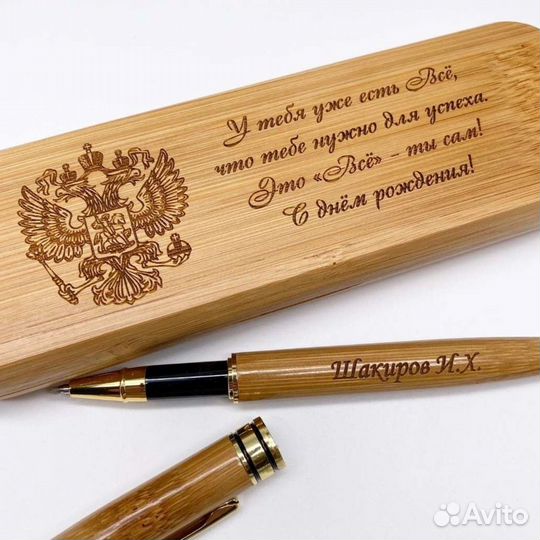 У тебя уже есть Всё,
что тебе нужно для успеха.
Это «Всё» – ты сам!
С днём рождения!
Шакиров И.Х.
Avito